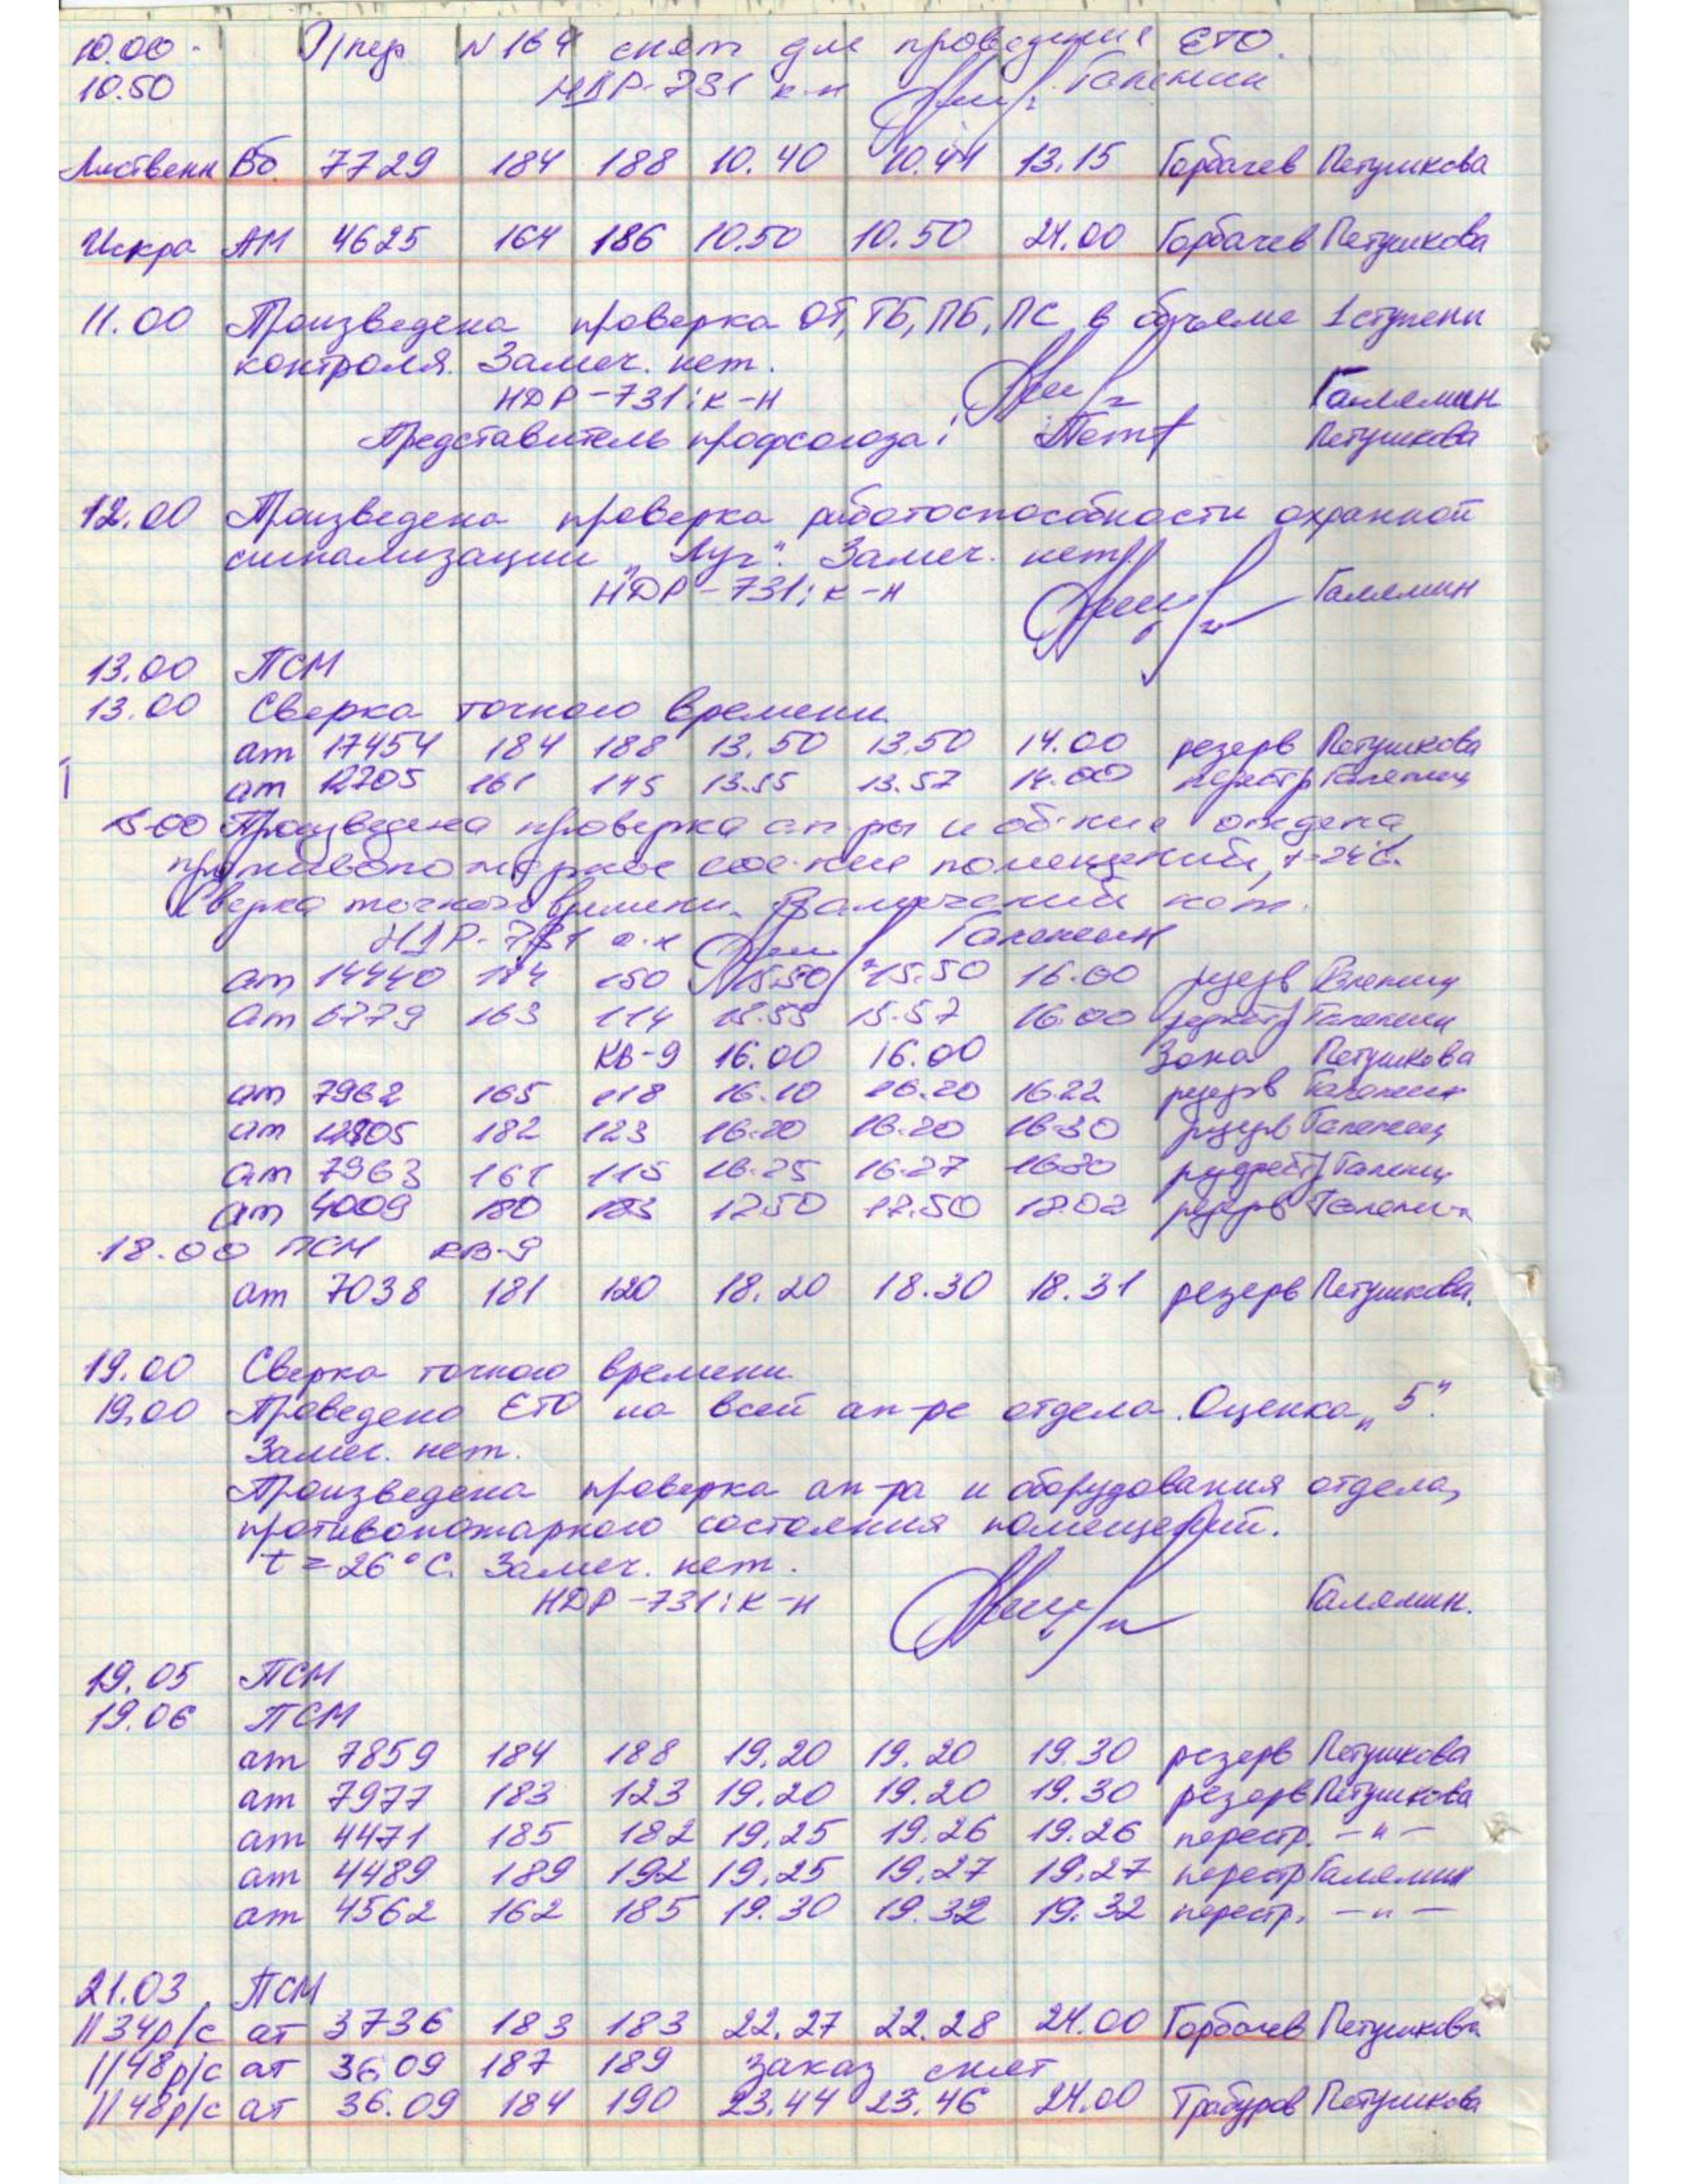 10.00 - П/пер N 164 снят для проведения ЕТО.
10.50 НДР-731 к-н Галямин
Лиственн Во 7729 184 188 10.40 10.44 13.15 Горбачев Петушкова
Искра АМ 4625 164 186 10.50 10.50 24.00 Горбачев Петушкова
11.00 Произведена проверка ОТ, ТБ, ПБ, ПС в объеме 1 ступени
контроля. Замеч. нет.
НДР-731: к-н Галямин
Представитель профсоюза: Петушкова
12.00 Произведена проверка работоспособности охранной
сигнализации „Луч". Замеч. нет.
НДР-731: к-н Галямин
13.00 ПСМ
13.00 Сверка точного времени
ат 17454 184 188 13.50 13.50 14.00 резерв Петушкова
ат 12205 161 145 13.55 13.57 14.00 перестр Галямин
15.00 Произведена проверка ап-ры и об-ния отдела,
противопожарное сос-ние помещений, t=24°С.
Сверка точного времени. Замечаний нет.
НДР-731 к-н Галямин
ат 14440 184 150 15.50 15.50 16.00 резерв Галямин
ат 6779 163 114 15.55 15.57 16.00 перестр Галямин
КВ-9 16.00 16.00 Зона Петушкова
ат 7962 165 118 16.10 16.20 16.22 резерв Галямин
ат 12805 182 123 16.20 16.20 16.30 резерв Галямин
ат 7963 161 115 16.25 16.27 16.30 Галямин
ат 4009 180 183 17.50 17.50 18.02 резерв Галямин
18.00 ПСМ КВ-9
ат 7038 181 120 18.20 18.30 18.31 резерв Петушкова.
19.00 Сверка точного времени.
19.00 Проведено ЕТО на всей ап-ре отдела. Оценка „5".
Замеч. нет.
Произведена проверка ап-ра и оборудования отдела,
противопожарного состояния помещений.
t = 26°С. Замеч. нет.
НДР-731: к-н Галямин.
19.05 ПСМ
19.06 ПСМ
ат 7859 184 188 19.20 19.20 19.30 резерв Петушкова
ат 7977 183 123 19.20 19.20 19.30 резерв Петушкова
ат 4471 185 182 19.25 19.26 19.26 перестр. —"—
ат 4489 189 192 19.25 19.27 19.27 перестр Галямин
ат 4562 162 185 19.30 19.32 19.32 перестр. —"—
21.03 ПСМ
1134р/с ат 3736 183 183 22.27 22.28 24.00 Горбачев Петушкова
1148р/с ат 36.09 187 189 заказ снят
1148р/с ат 36.09 184 190 23.44 23.46 24.00 Трабуров Петушкова